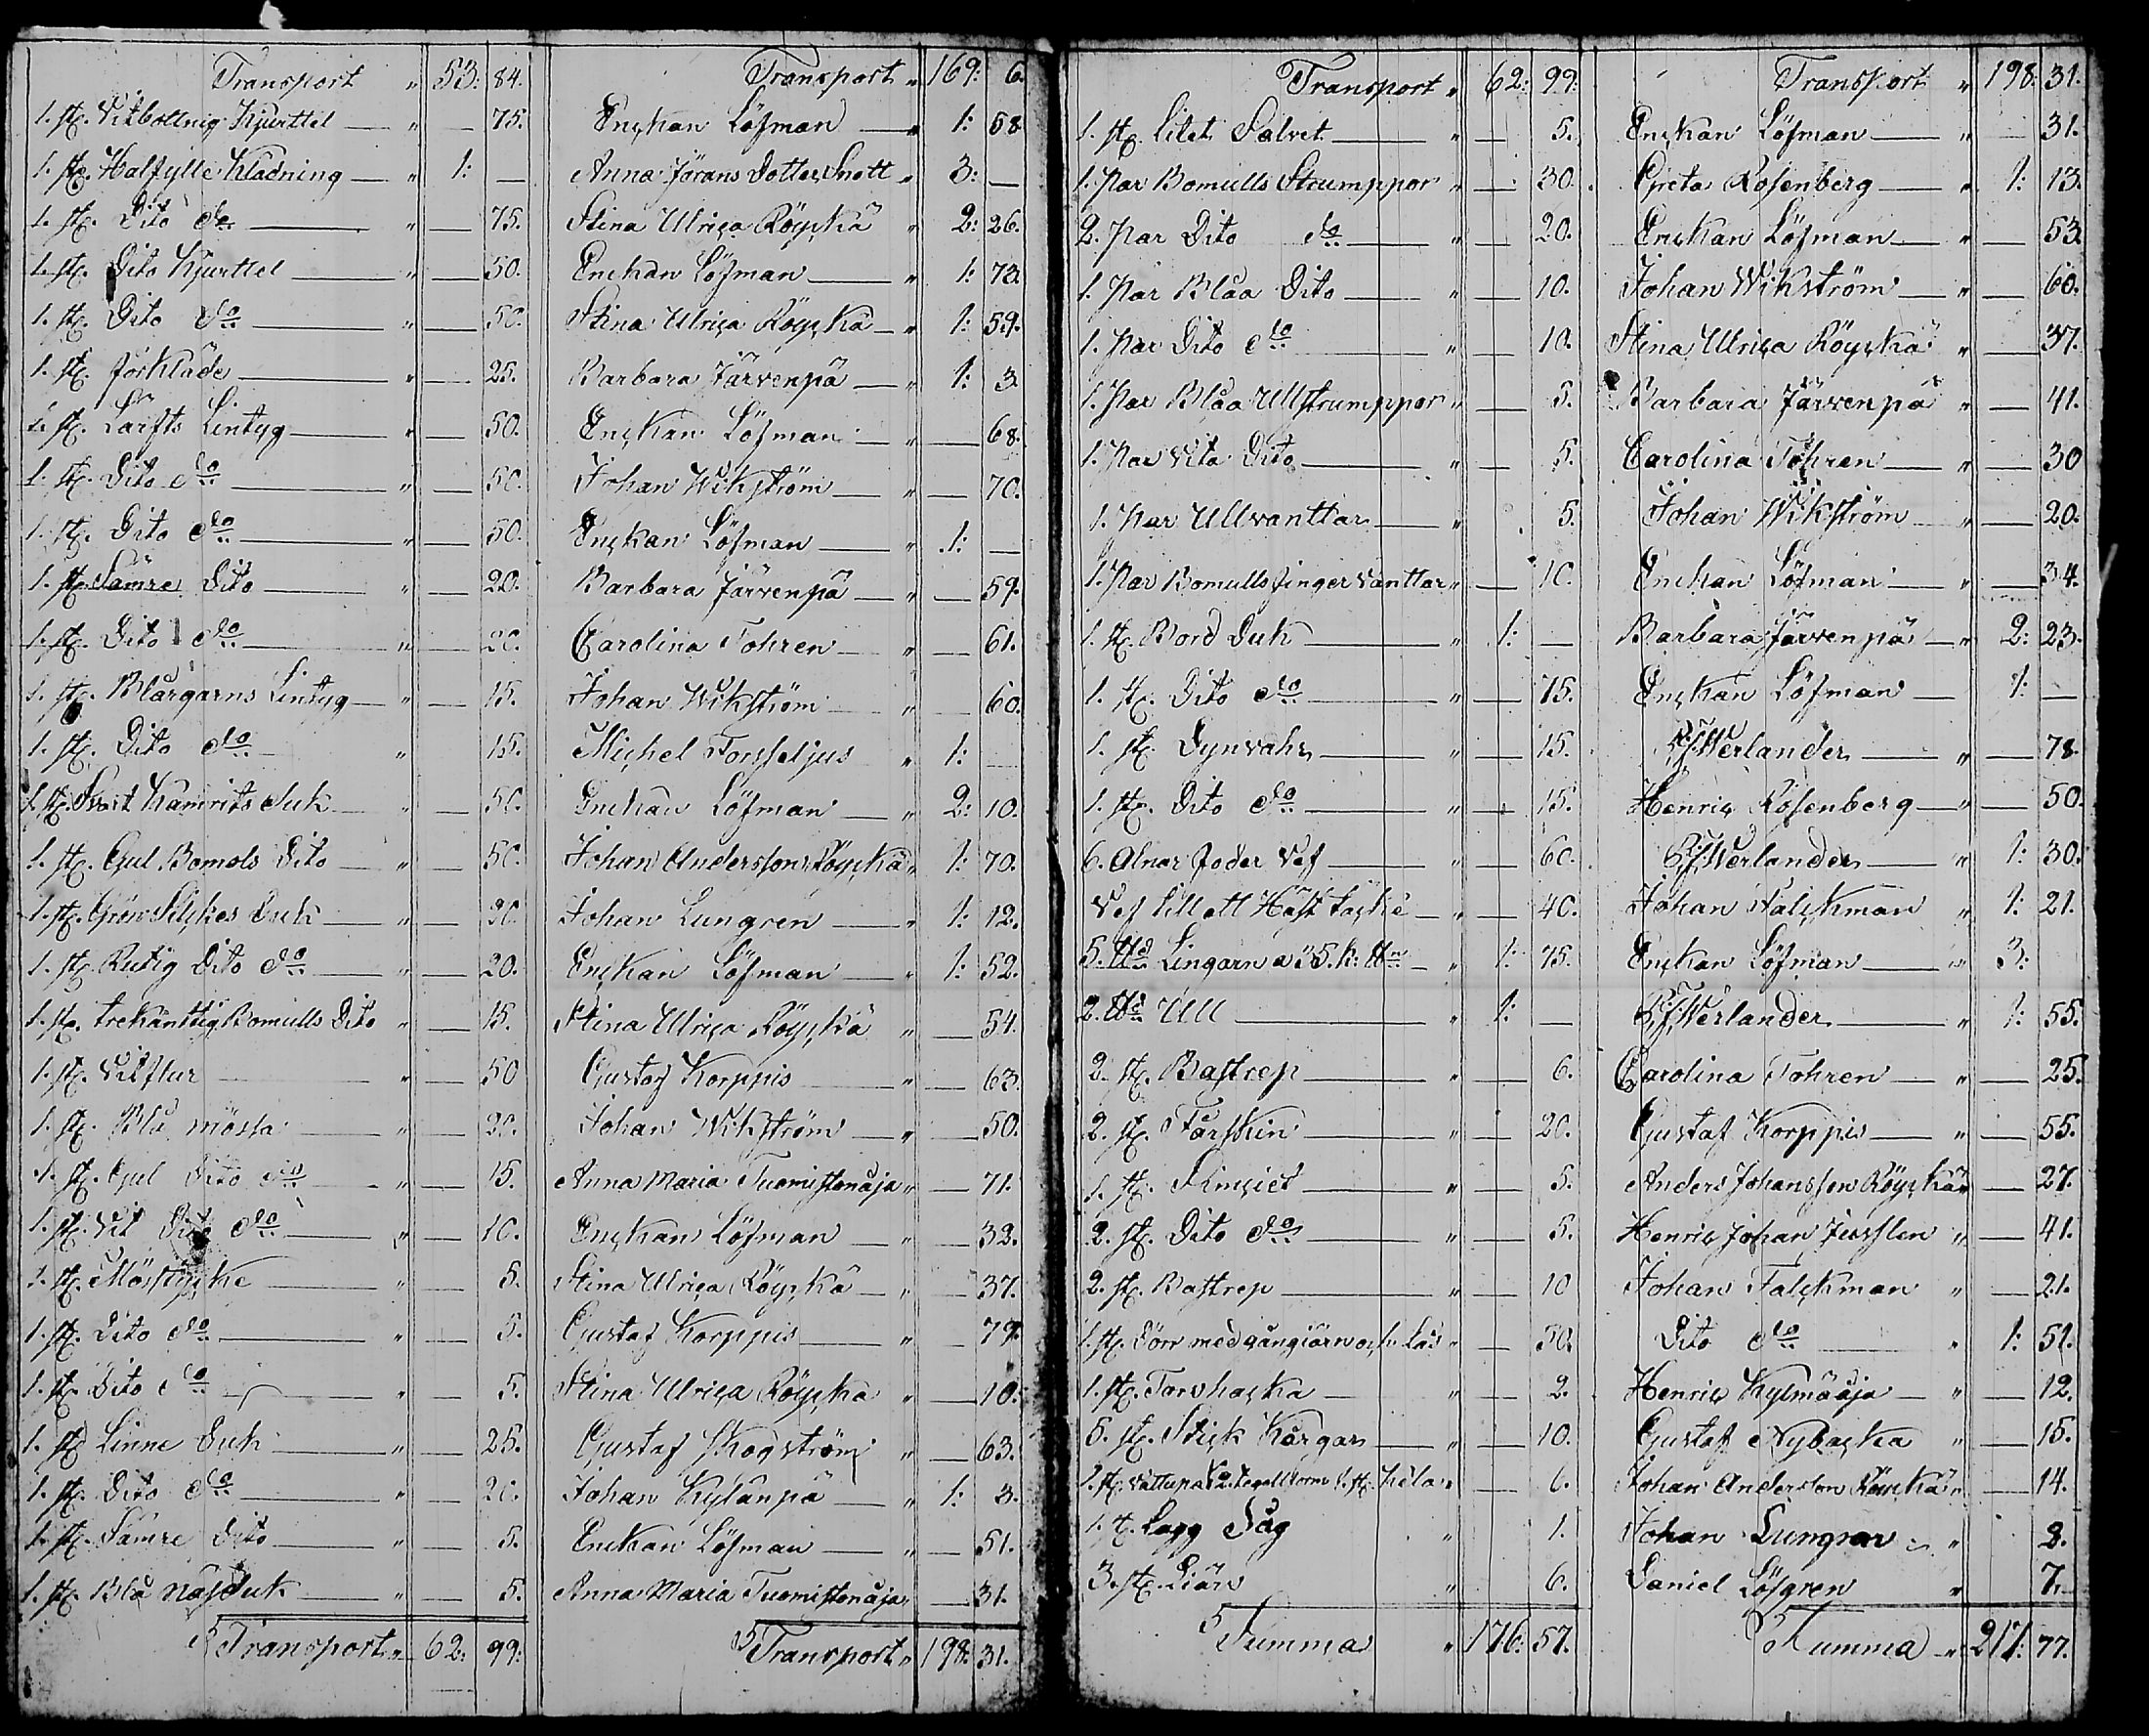 Transport " 53: 84. Transport " 169: 6.
1. st. Vitbottnig Kjurttel " — 75. Enckan Löfman " 1: 58
1. st. Halfylle Kladning " 1: — Anna Jörans Dotter Snott " 3: —
1. st. Dito do " — 75. Stina Ulrica Röyckä " 2: 26.
1. st. Dito Kjurttel " — 50. Enckan Löfman " 1: 73.
1. st. Dito do " — 50. Stina Ulrica Röyckä " 1: 59.
1. st. förkläde " — 25. Barbara Järvenpä " 1: 3
1. st. Lärfts Lintyg " — 50. Enckan Löfman " — 68.
1. st. Dito do " — 50. Johan Wikström " — 70.
1. st. Dito do " — 50. Enckan Löfman " 1: —
1. st. Sämre Dito " — 20. Barbara Järvenpä " — 59.
1. st. Dito do " — 20. Carolina Tohren " — 61.
1. st. Blårgarns Lintyg " — 15. Johan Wikström " — 60.
1. st. Dito do " 15. Michel Forsseljus " 1: —
1. st. Svart Kamrits duk " 50. Enckan Löfman " 2: 10.
1. st. Gul Bomols Dito " — 50. Johan Andersson Röyckä " 1: 70.
1. st. Grön Silckes Duk " — 20. Johan Lungren " 1: 12.
1. st. Rutig Dito do " — 20. Enckan Löfman " 1: 52.
1. st. trekänttig Bomulls Dito " — 15. Stina Ulrica Röyckä " — 54.
1. st. Vitflur " — 50 Gustaf Korppis " — 63.
1. st. Blå mössa " — 20. Johan Wikström " — 50.
1. st. Gul Dito do " — 15. Anna Maria Tuomistonåja " — 71.
1. st. Vit Dito do " — 10. Enckan Löfman " — 32.
1. st. Mösstycke " 5. Stina Ulrica Röyckä " — 37.
1. st. Dito do " — 5. Gustaf Korppis " — 79.
1. st. Dito do " — 5. Stina Ulrica Röyckä " — 10.
1. st. Linne Duk " — 25. Gustaf Skogström " — 63.
1. st. Dito do " — 20. Johan Kylänpä " 1: 3.
1. st. Sämre Dito " — 5. Enckan Löfman " — 51.
1. st. Blå näsduk " — 5. Anna Maria Tuomistonåja " — 31.
Transport " 62: 99: Transport " 198: 31.
Transport " 62: 99: Transport " 198: 31.
1. st. Litet Salvet " — 5. Enckan Löfman " 31.
1. Par Bomulls Strumppor " — 30. Greta Rosenberg " 1: 13.
2. Par Dito do " — 20. Enckan Löfman " — 53.
1. Par Blåa Dito " — 10. Johan Wikström " — 60.
1. Par Dito do " — 10. Stina Ulrica Röyckä " — 37.
1. Par Blåa Ullstrumppor " — 5. Barbara Järvenpä " — 41.
1. Par Vita Dito " — 5. Carolina Tohren " — 30
1. Par Ullvanttar " 5. Johan Wikström " — 20.
1. Par Bomulls finger Vanttar " — 10. Enckan Löfman " — 34.
1. st. Bord Duk " 1: — Barbara Järvenpä " 2: 23.
1. st. Dito do " — 75. Enckan Löfman — 1: —
1. st. Dynvahr " — 15. Werlander " — 78.
1. st. Dito do " — 15. Henric Rosenberg " — 50.
6. Alnar foder Vef " — 60. Werlander " 1: 30.
Vef till ett Häst täcke " — 40. Johan Falckman " 1: 21.
5. ℔d Lingarn a 35. k: ℔n " 1: 75. Enckan Löfman " 3:
2. ℔d Ull " 1: — Werlander " 1: 55.
2. st. Bastrep " — 6. Carolina Tohren " — 25.
2. st. Fårskin " — 20. Gustaf Korppis " — 55.
1. st. " — 5. Anders Johansson Röyckä " — 27.
2. st. Dito do " — 5. Henric Johan " — 41.
2. st. Bastrep " — 10 Johan Falckman " — 21.
1. st. Dörr med gångiärn och Lås " — 50. Dito do " 1: 51.
1. st. Torvhacka " — 2. Henric Kylmäåja " — 12.
5. st. Stick Kårgar " — 10. Gustaf Nybacka " — 15.
1. st. 1. st. " — 6. Johan Andersson Röyckä " — 14.
1. st. Lagg Såg " 1. Johan Lungren " 8.
3. st. Liär " 6. Daniel Löfgren " 7.
Summa " 176: 57. Summa " 217: 77.